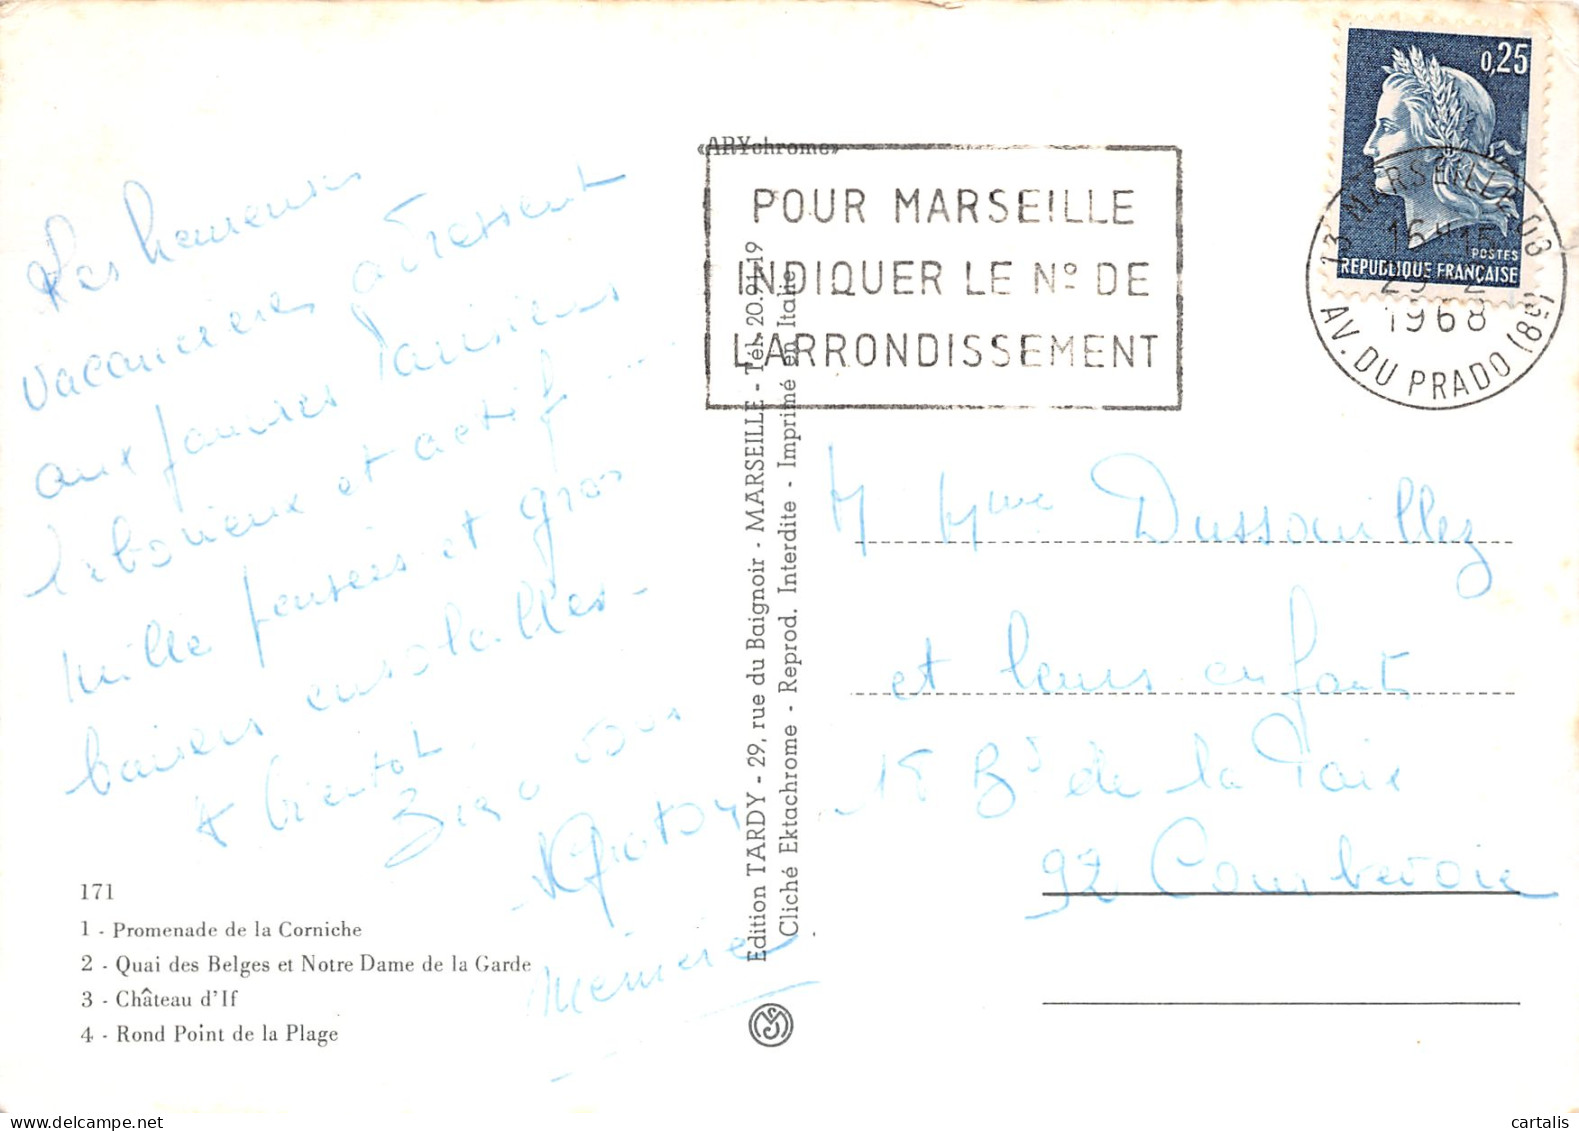 Les heureuses
vacancières adressent
aux pauvres Parisiens
laborieux et actif....
mille pensées et gros
baisers ensoleillés-
A bientôt
vous
Mémère
171
1 - Promenade de la Corniche
2 - Quai des Belges et Notre Dame de la Garde
3 - Château d'If
4 - Rond Point de la Plage
«ARYchrome»
Edition TARDY - 29, rue du Baignoir - MARSEILLE - Tél. 20.91.19
Cliché Ektachrome - Reprod. Interdite - Imprimé en Italie
POUR MARSEILLE
INDIQUER LE Nº DE
L'ARRONDISSEMENT
0,25
POSTES
REPUBLIQUE FRANÇAISE
13 MARSEILLE 08
16H15
29-2
1968
AV. DU PRADO (8e)
M Mme Dussouillez
et leurs enfants
18 Bd de la Paix
92 Courbevoie
delcampe.net
cartalis